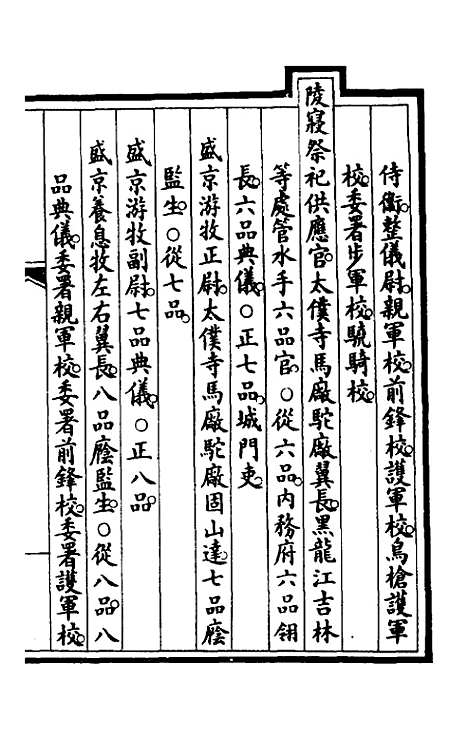 侍衞整儀尉親軍校前鋒校護軍校鳥槍護軍
校委署步軍校驍騎校
陵寢祭祀供應官太僕寺馬廠駝廠翼長黑龍江吉林
等處管水手六品官○從六品內務府六品翎
長六品典儀○正七品城門吏
盛京游牧正尉太僕寺馬廠駝廠固山達七品廕
監生○從七品
盛京游牧副尉七品典儀○正八品
盛京養息牧左右翼長八品廕監生○從八品八
品典儀委署親軍校委署前鋒校委署護軍校